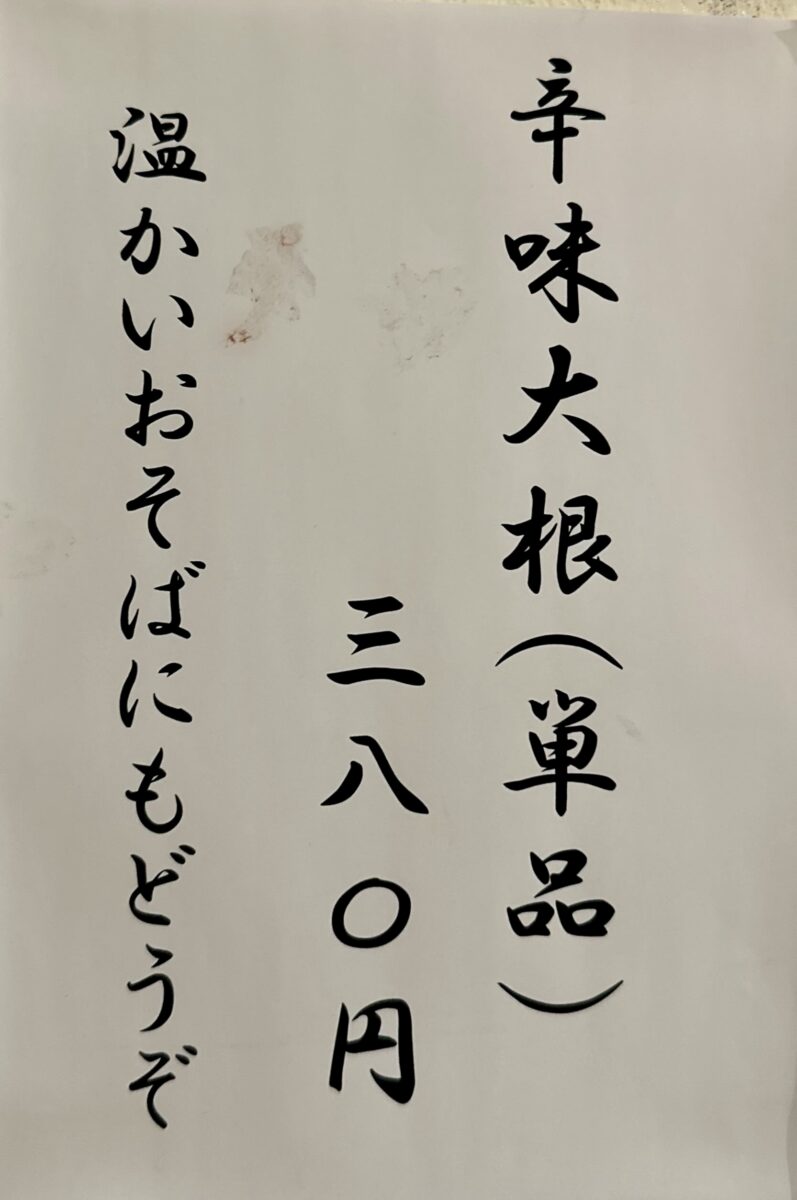 辛味大根(単品)
三八〇円
温かいおそばにもどうぞ